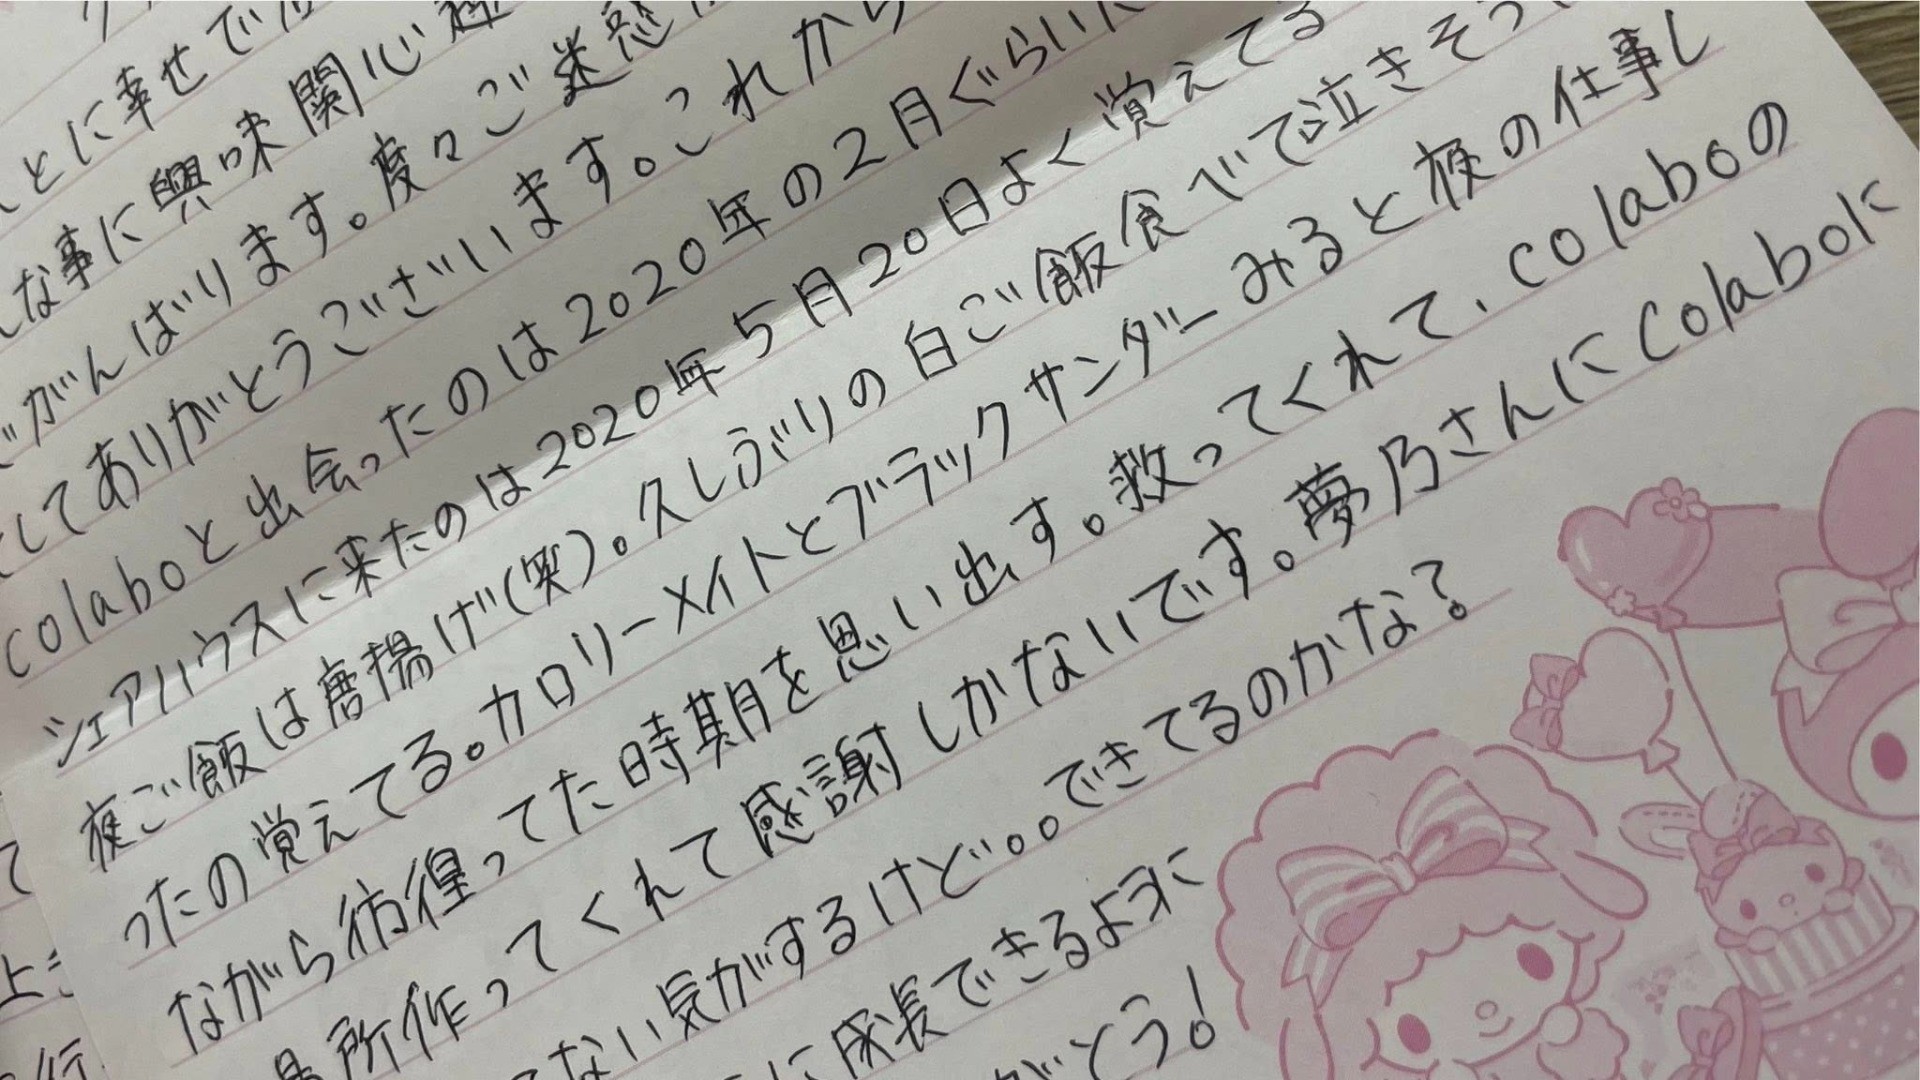 とに幸せで
な事に興味関心
がんばります。度々ご迷惑
してありがとうございます。これから
colaboと出会ったのは2020年の2月ぐらいに
シェアハウスに来たのは2020年5月20日よく覚えてる
夜ご飯は唐揚げ(笑)。久しぶりの白ご飯食べて泣きそう
ったの覚えてる。カロリーメイトとブラックサンダーみると夜の仕事し
ながら彷徨ってた時期を思い出す。救ってくれて、colaboの
場所作ってくれて感謝しかないです。夢乃さんにcolaboに
ない気がするけど。。できてるのかな?
に成長できるように
がとう!